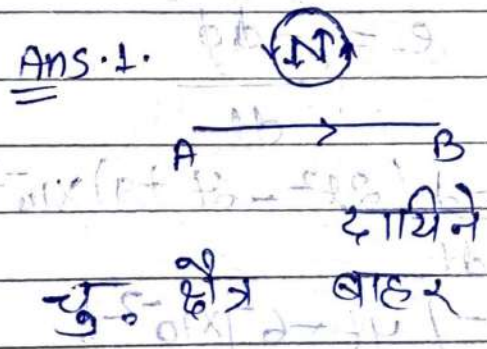 Ans.1.
N
A B
दायिने
चु. क्षैत्र बाहर